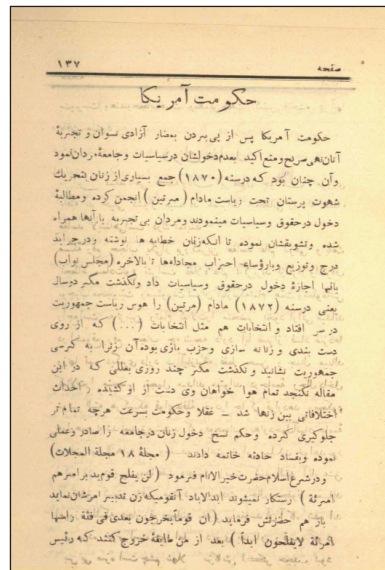 صفحه ۱۳۷
حکومت آمریکا
حکومت آمریکا پس از پی بردن بمضار آزادی نسوان و تجربهٔ
آنان نهی صریح و منع اکید بعدم دخولشان در سیاسیات و جامعهٔ مردان نمود
و آن چنان بود که در سنه (۱۸۷۰) جمع بسیاری از زنان بتحریک
شهوت پرستان تحت ریاست مادام (مرتین) انجمن کرده و مطالبهٔ
دخول در حقوق و سیاسیات مینمودند و مردان بی تجربه با آنها همراه
شده و تشویقشان نموده تا آنکه زنان خطابه ها نوشته و در جراید
درج و توزیع و با رؤساء احزاب مجادله ها تا بالاخره (مجلس نواب)
بآنها اجازهٔ دخول در حقوق و سیاسیات داد و نگذشت مگر دو سال
یعنی در سنه (۱۸۷۲) مادام (مرتین) را هوس ریاست جمهوریت
در سر افتاد و انتخابات هم مثل انتخابات (...) که از روی
دست بندی و زنانه سازی و حزب بازی بوده آن زنرا به کرسی
جمهوریت نشانید و نگذشت مگر چند روزی بعللی که در این
مقاله نگنجد تمام هوا خواهان وی دست از او کشیده و احداث
اختلافاتی بین زنها شد ــ عقلا و حکومت بسرعت هرچه تمام تر
جلوگیری کرده و حکم نسخ دخول زنان در جامعه را صادر و عملی
نموده و بفساد حادثه خاتمه دادند (مجلهٔ ۱۸ مجلة المجلات)
و در شرع اسلام حضرت خیر الانام فرمود (لن یفلح قوم ید بر امرهم
امرئة) رستکار نمیشوند ابدالاباد آنقومیکه زن تدبیر امرشان نماید
باز هم حضرتش فرماید (ان قوماً یخرجون بعدی فی فئة رأسها
امرئة لایفلحون ابداً) بعد از من طایفهٔ خروج کنند که رئیس